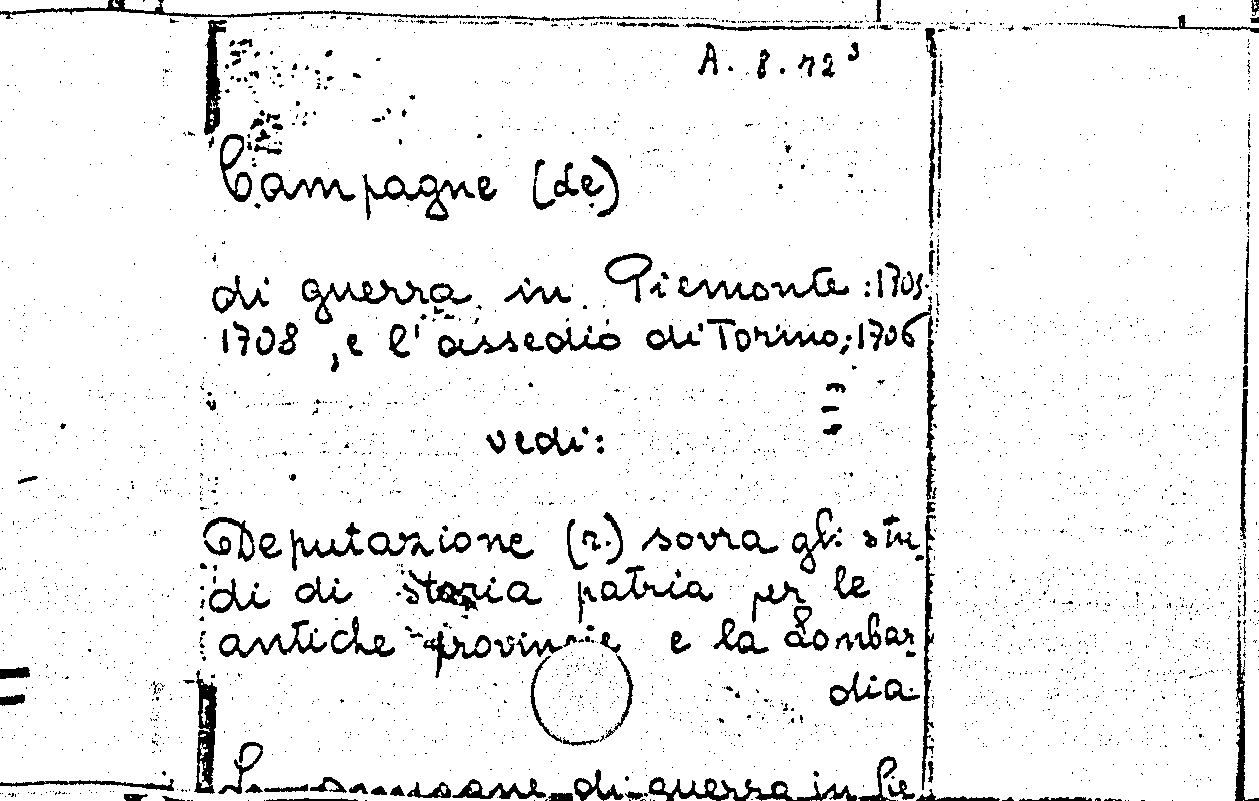 A. 8. 72³
Campagne (de)
di guerra in Piemonte :1703-
1708, e l'assedio di Torino,;1706
vedi:
Deputazione (r.) sovra gli stu_
di di storia patria per le
antiche provincie e la Lombar_
dia
Le campagne di guerra in Pie